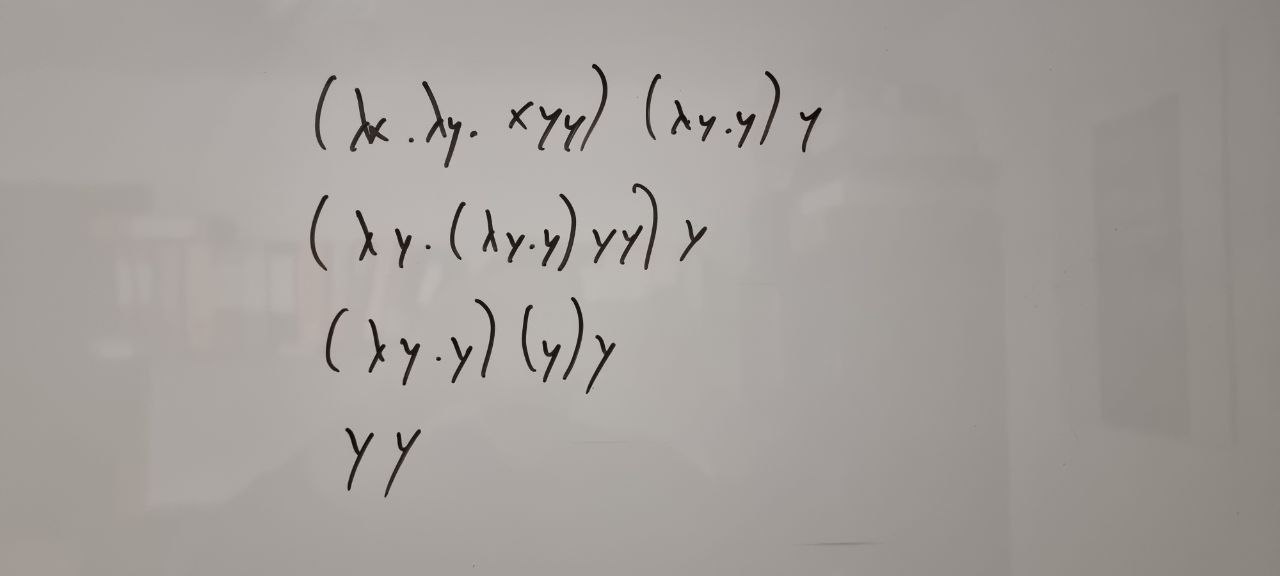 (λx.λy. xyy) (λy.y) y
(λy.(λy.y)yy) y
(λy.y) (y)y
yy